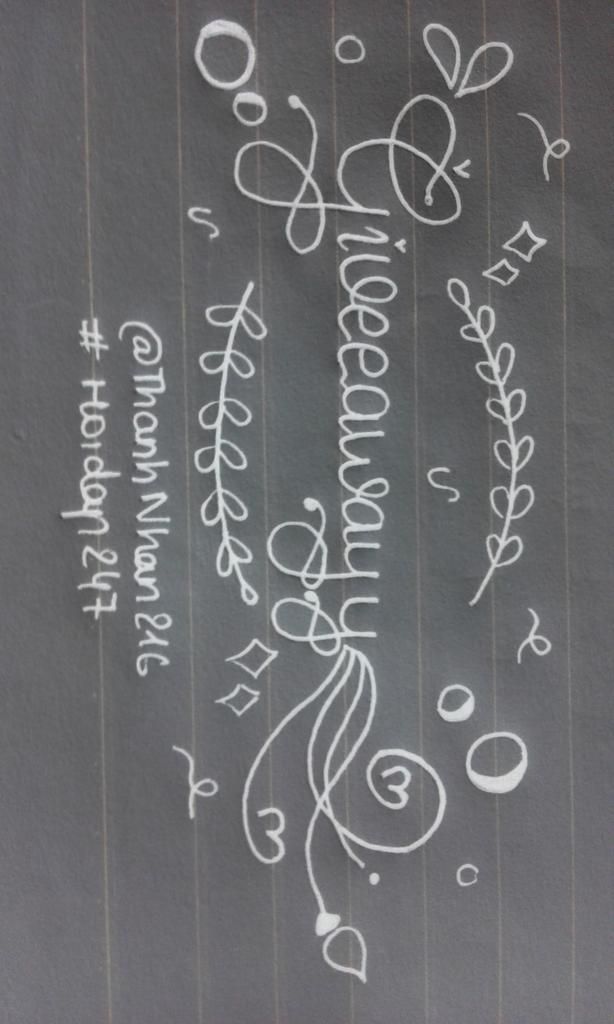 Giveeawayy
@Thanh Nhan 216
# Hoidap 247